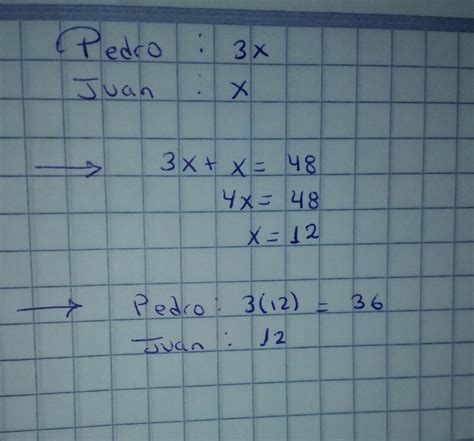 Pedro : 3x
Juan : x
→ 3x + x = 48
4x = 48
x = 12
→ Pedro : 3(12) = 36
Juan : 12